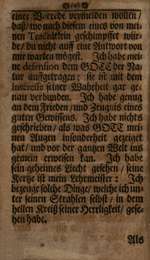 einer Vorrede vermeiden wollen /
daß / wo auch diesem einen von mei-
nen Tensätzlein geschimpfet wür-
de / du nicht auf eine Antwort von
mir warten mögest. Ich habe mei-
ne defension dem GOTT der Na-
tur aufgetragen; sie ist mit dem
interesse seiner Wahrheit gar ge-
nau verbunden. Ich habe genug
an dem Frieden / und Zeugnis eines
guten Gewissens. Ich habe nichts
geschrieben / als was GOTT mei-
nen Augen insonderheit gezeiget
hat / und vor der gantzen Welt ins
gemein erweisen kan. Ich habe
sein geheimes Liecht gesehen / seine
Kertze ist mein Lehrmeister: Ich
bezeuge solche Dinge / welche ich un-
ter seinen Strahlen selbst / in dem
hellen Kreiß seiner Herrligkeit / gese-
hen habe.
Als